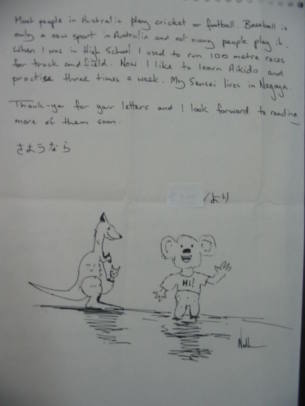 Most people in Australia play cricket or football. Baseball is
only a new sport in Australia and not many people play it.
When I was in High School I used to run 100 metre races
for track and field. Now I like to learn Aikido and
practise three times a week. My Sensei lives in Nagoya.
Thank-you for your letters and I look forward to reading
more of them soon.
さようなら
より
HI!